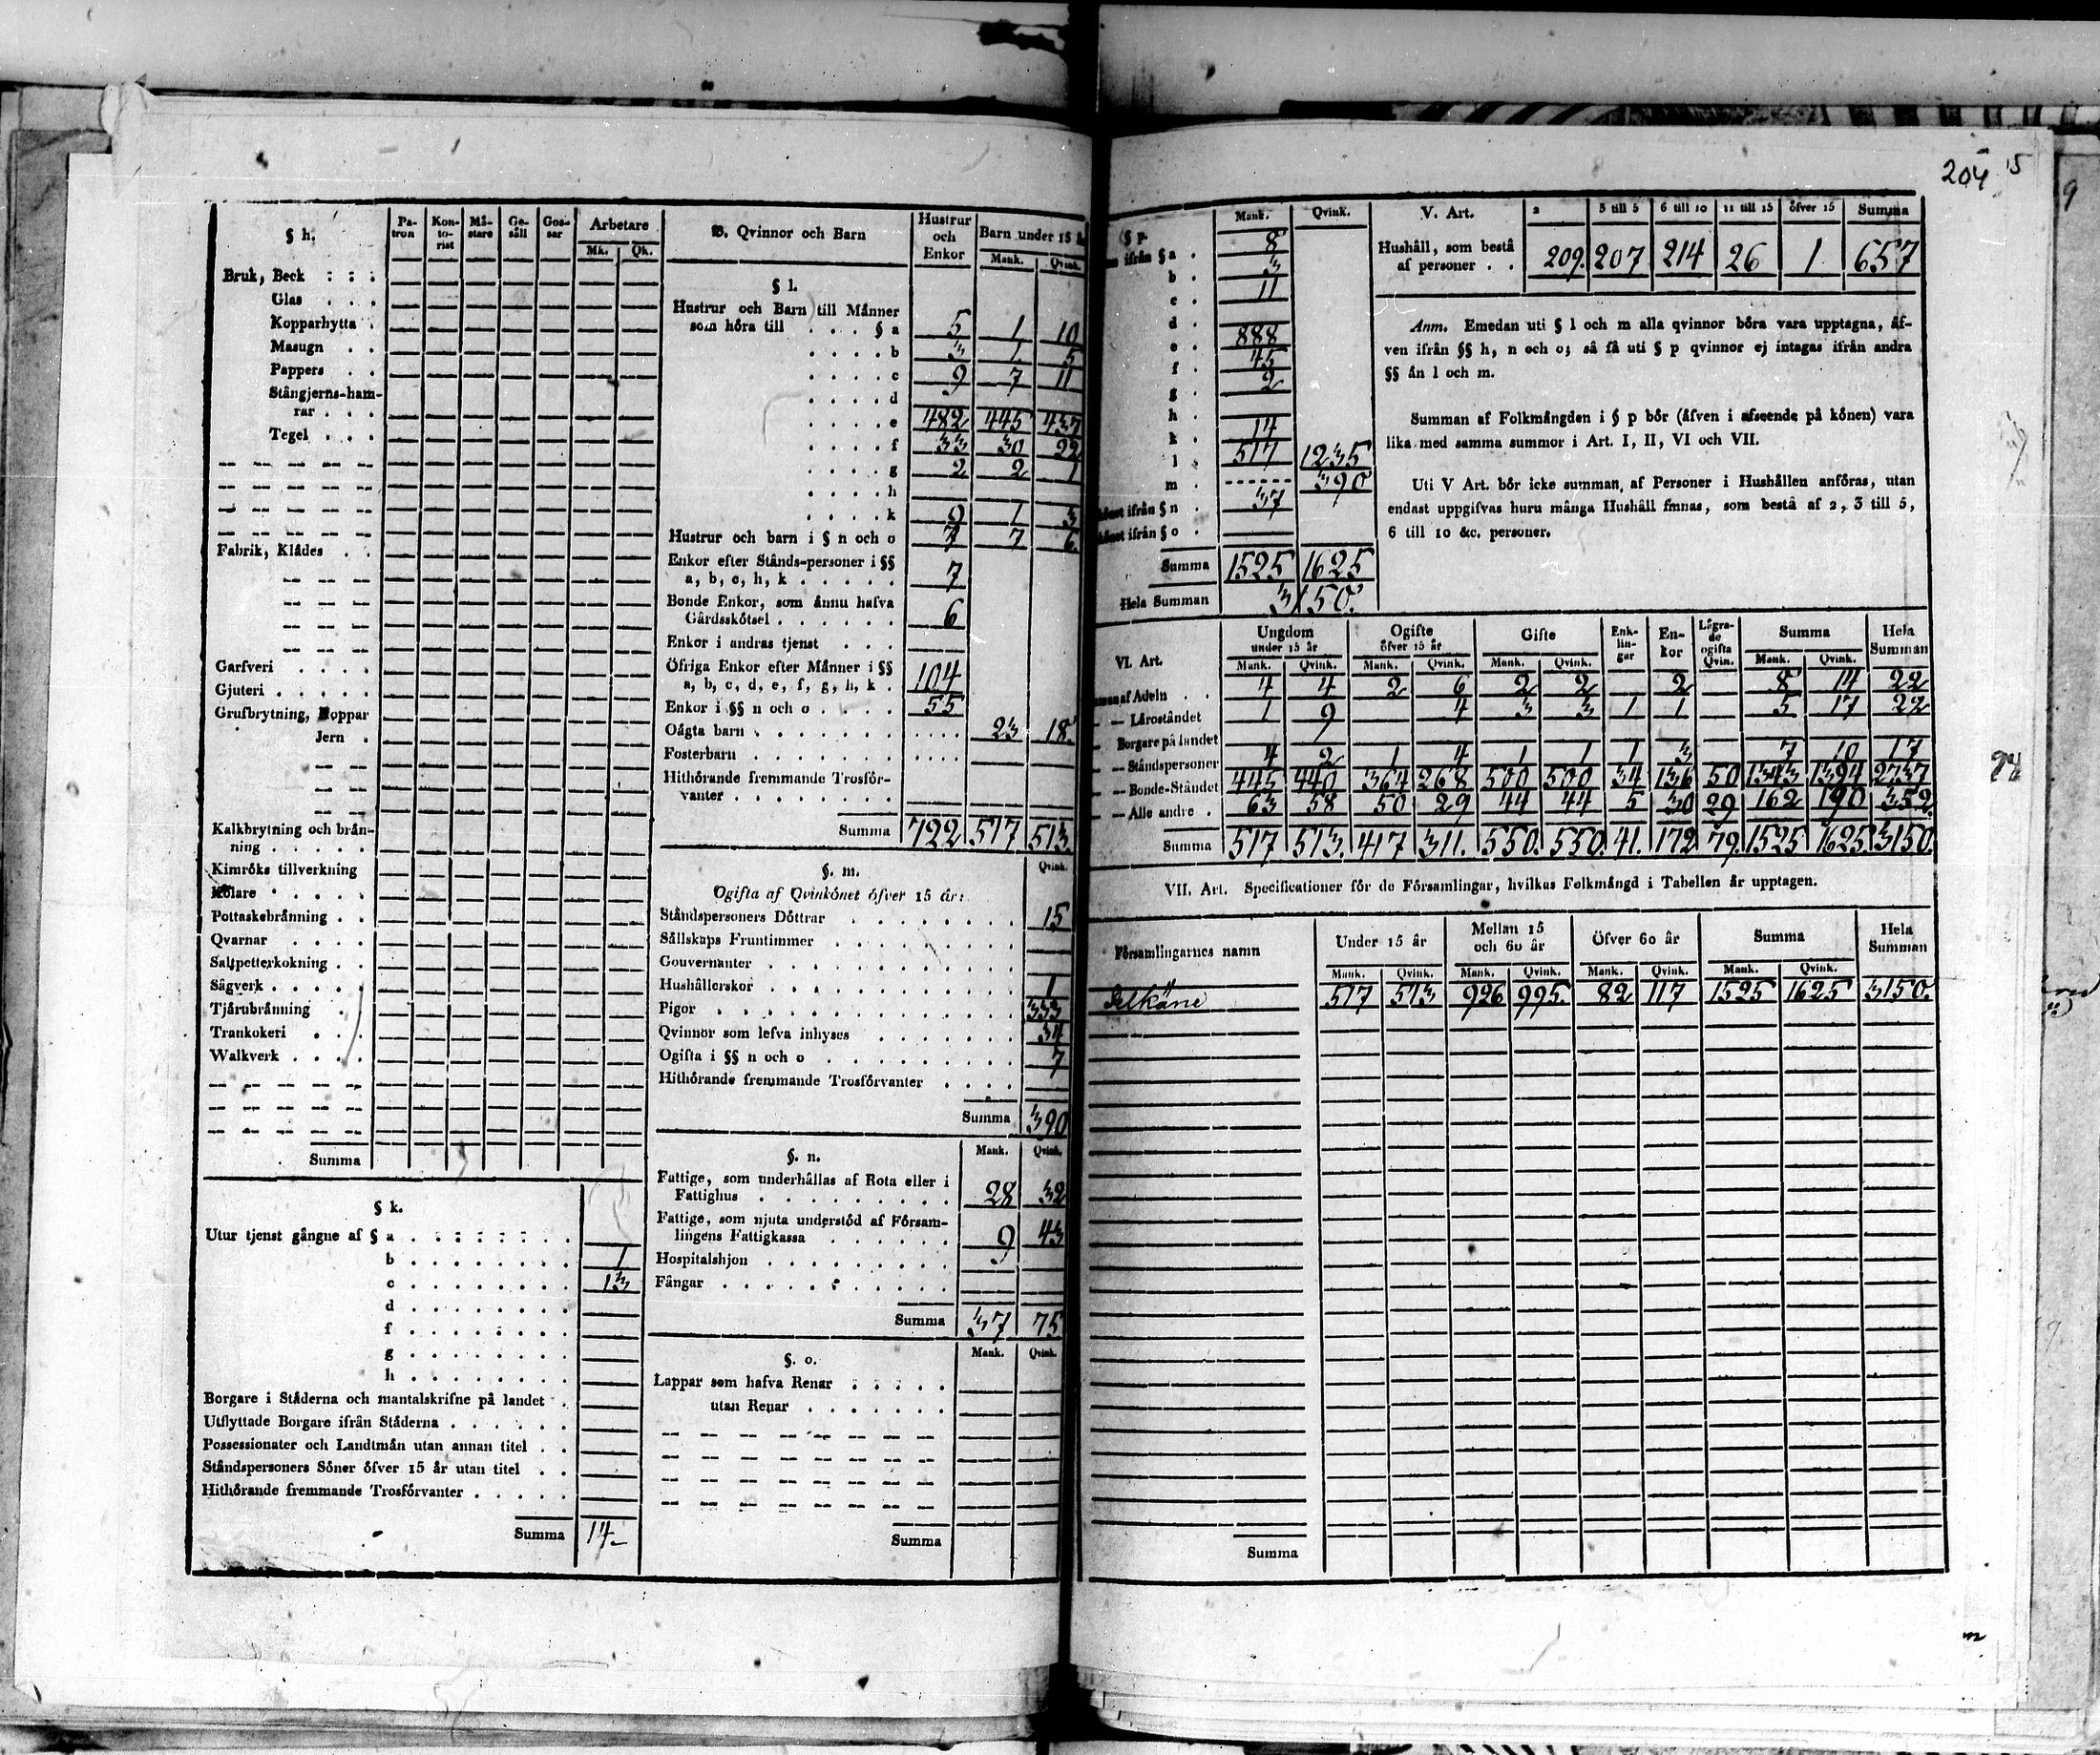 204 5
§ h.
Pa-tron Kon-to-rist Må-stare Ge-säll Gos-sar Arbetare
Mk. Qk.
Bruk, Beck : : :
Glas . . .
Kopparhytta .
Masugn . .
Pappers . .
Stångjerns-ham-
rar . . .
Tegel . . .
Fabrik, Klädes . .
Garfveri . . . .
Gjuteri . . . . .
Grufbrytning, Koppar
Jern .
Kalkbrytning och brän-
ning . . . . .
Kimröks tillverkning
Kolare . . . . .
Pottaskebränning . .
Qvarnar . . . .
Saltpetterkokning . .
Sågverk . . . . .
Tjärubränning .
Trankokeri . . .
Walkverk . . . .
Summa
§ k.
Utur tjenst gångne af § a . . . . . . .
b . . . . . . . 1
c . . . . . . . 13
d . . . . . . .
f . . . . . . .
g . . . . . . .
h . . . . . . .
Borgare i Städerna och mantalskrifne på landet .
Utflyttade Borgare ifrån Städerna . . . . .
Possessionater och Landtmän utan annan titel . .
Ståndspersoners Söner öfver 15 år utan titel . .
Hithörande fremmande Trosförvanter . . . . .
Summa 14
B. Qvinnor och Barn
Hustrur och Enkor
Barn under 15 år
Mank. Qvink.
§ l.
Hustrur och Barn till Männer
som höra till . . . § a 5 1 10
. . . . b 3 1 5
. . . . c 9 7 11
. . . . d
. . . . e 482 445 437
. . . . f 33 30 22
. . . . g 2 2 1
. . . . h
. . . . k 9 1 3
Hustrur och barn i § n och o 7 7 6
Enkor efter Stånds-personer i §§
a, b, c, h, k . . . . . 7
Bonde Enkor, som ännu hafva
Gårdsskötsel . . . . . . 6
Enkor i andras tjenst . . .
Öfriga Enkor efter Männer i §§
a, b, c, d, e, f, g, h, k . 104
Enkor i §§ n och o . . . . 55
Oägta barn . . . . . . . 23 18.
Fosterbarn . . . . . . .
Hithörande fremmande Trosför-
vanter . . . . . . . .
Summa 722 517 513.
§. m.
Qvink.
Ogifta af Qvinkönet öfver 15 år:
Ståndspersoners Döttrar . . . . . . . 15
Sällskaps Fruntimmer . . . . . . . .
Gouvernanter . . . . . . . . . . .
Hushållerskor . . . . . . . . . . . 1
Pigor . . . . . . . . . . . . . 333
Qvinnor som lefva inhyses . . . . . . . 34
Ogifta i §§ n och o . . . . . . . . . 7
Hithörande fremmande Trosförvanter . . . .
Summa 390
§. n.
Mank. Qvink.
Fattige, som underhållas af Rota eller i
Fattighus . . . . . . . . . 28 32
Fattige, som njuta understöd af Försam-
lingens Fattigkassa . . . . . . 9 43
Hospitalshjon . . . . . . . . .
Fångar . . . . . . . . . . .
Summa 37 75
§. o.
Mank. Qvink.
Lappar som hafva Renar . . . . .
utan Renar . . . . . . .
Summa
§ p.
Mank. Qvink.
ifrån § a . 8
b . 3
c . 11
d .
e . 888
f . 45
g . 2
h .
k . 14
l . 517 1235
m . 390
ifrån § n . 37
ifrån § o .
Summa 1525 1625
Hela Summan 3150.
V. Art. 2 3 till 5 6 till 10 11 till 15 öfver 15 Summa
Hushåll, som bestå
af personer . . 209. 207 214 26 1 657
Anm. Emedan uti § l och m alla qvinnor böra vara upptagna, äf-
ven ifrån §§ h, n och o; så få uti § p qvinnor ej intagas ifrån andra
§§ än l och m.
Summan af Folkmängden i § p bör (äfven i afseende på könen) vara
lika med samma summor i Art. I, II, VI och VII.
Uti V Art. bör icke summan af Personer i Hushållen anföras, utan
endast uppgifvas huru många Hushåll finnas, som bestå af 2, 3 till 5,
6 till 10 &c. personer.
VI. Art. Ungdom under 15 år Ogifte öfver 15 år Gifte Enk-lin-gar En-kor Lägra-de ogifta Qvin. Summa Hela Summan
Mank. Qvink. Mank. Qvink. Mank. Qvink. Mank. Qvink.
af Adeln . . 4 4 2 6 2 2 2 8 14 22
— Läroståndet 1 9 4 3 3 1 1 5 17 22
Borgare på landet
— Ståndspersoner 4 2 1 4 1 1 1 3 7 10 17
— Bonde-Ståndet 445 440 364 268 500 500 34 136 50 1343 1394 2737
— Alle andre . 63 58 50 29 44 44 5 30 29 162 190 352
Summa 517 513. 417 311. 550. 550. 41. 172 79. 1525 1625 3150.
VII. Art. Specificationer för de Församlingar, hvilkas Folkmängd i Tabellen är upptagen.
Församlingarnes namn Under 15 år Mellan 15 och 60 år Öfver 60 år Summa Hela Summan
Mank. Qvink. Mank. Qvink. Mank. Qvink. Mank. Qvink.
Selkäne 517 513 926 995. 82 117 1525 1625 3150.
Summa